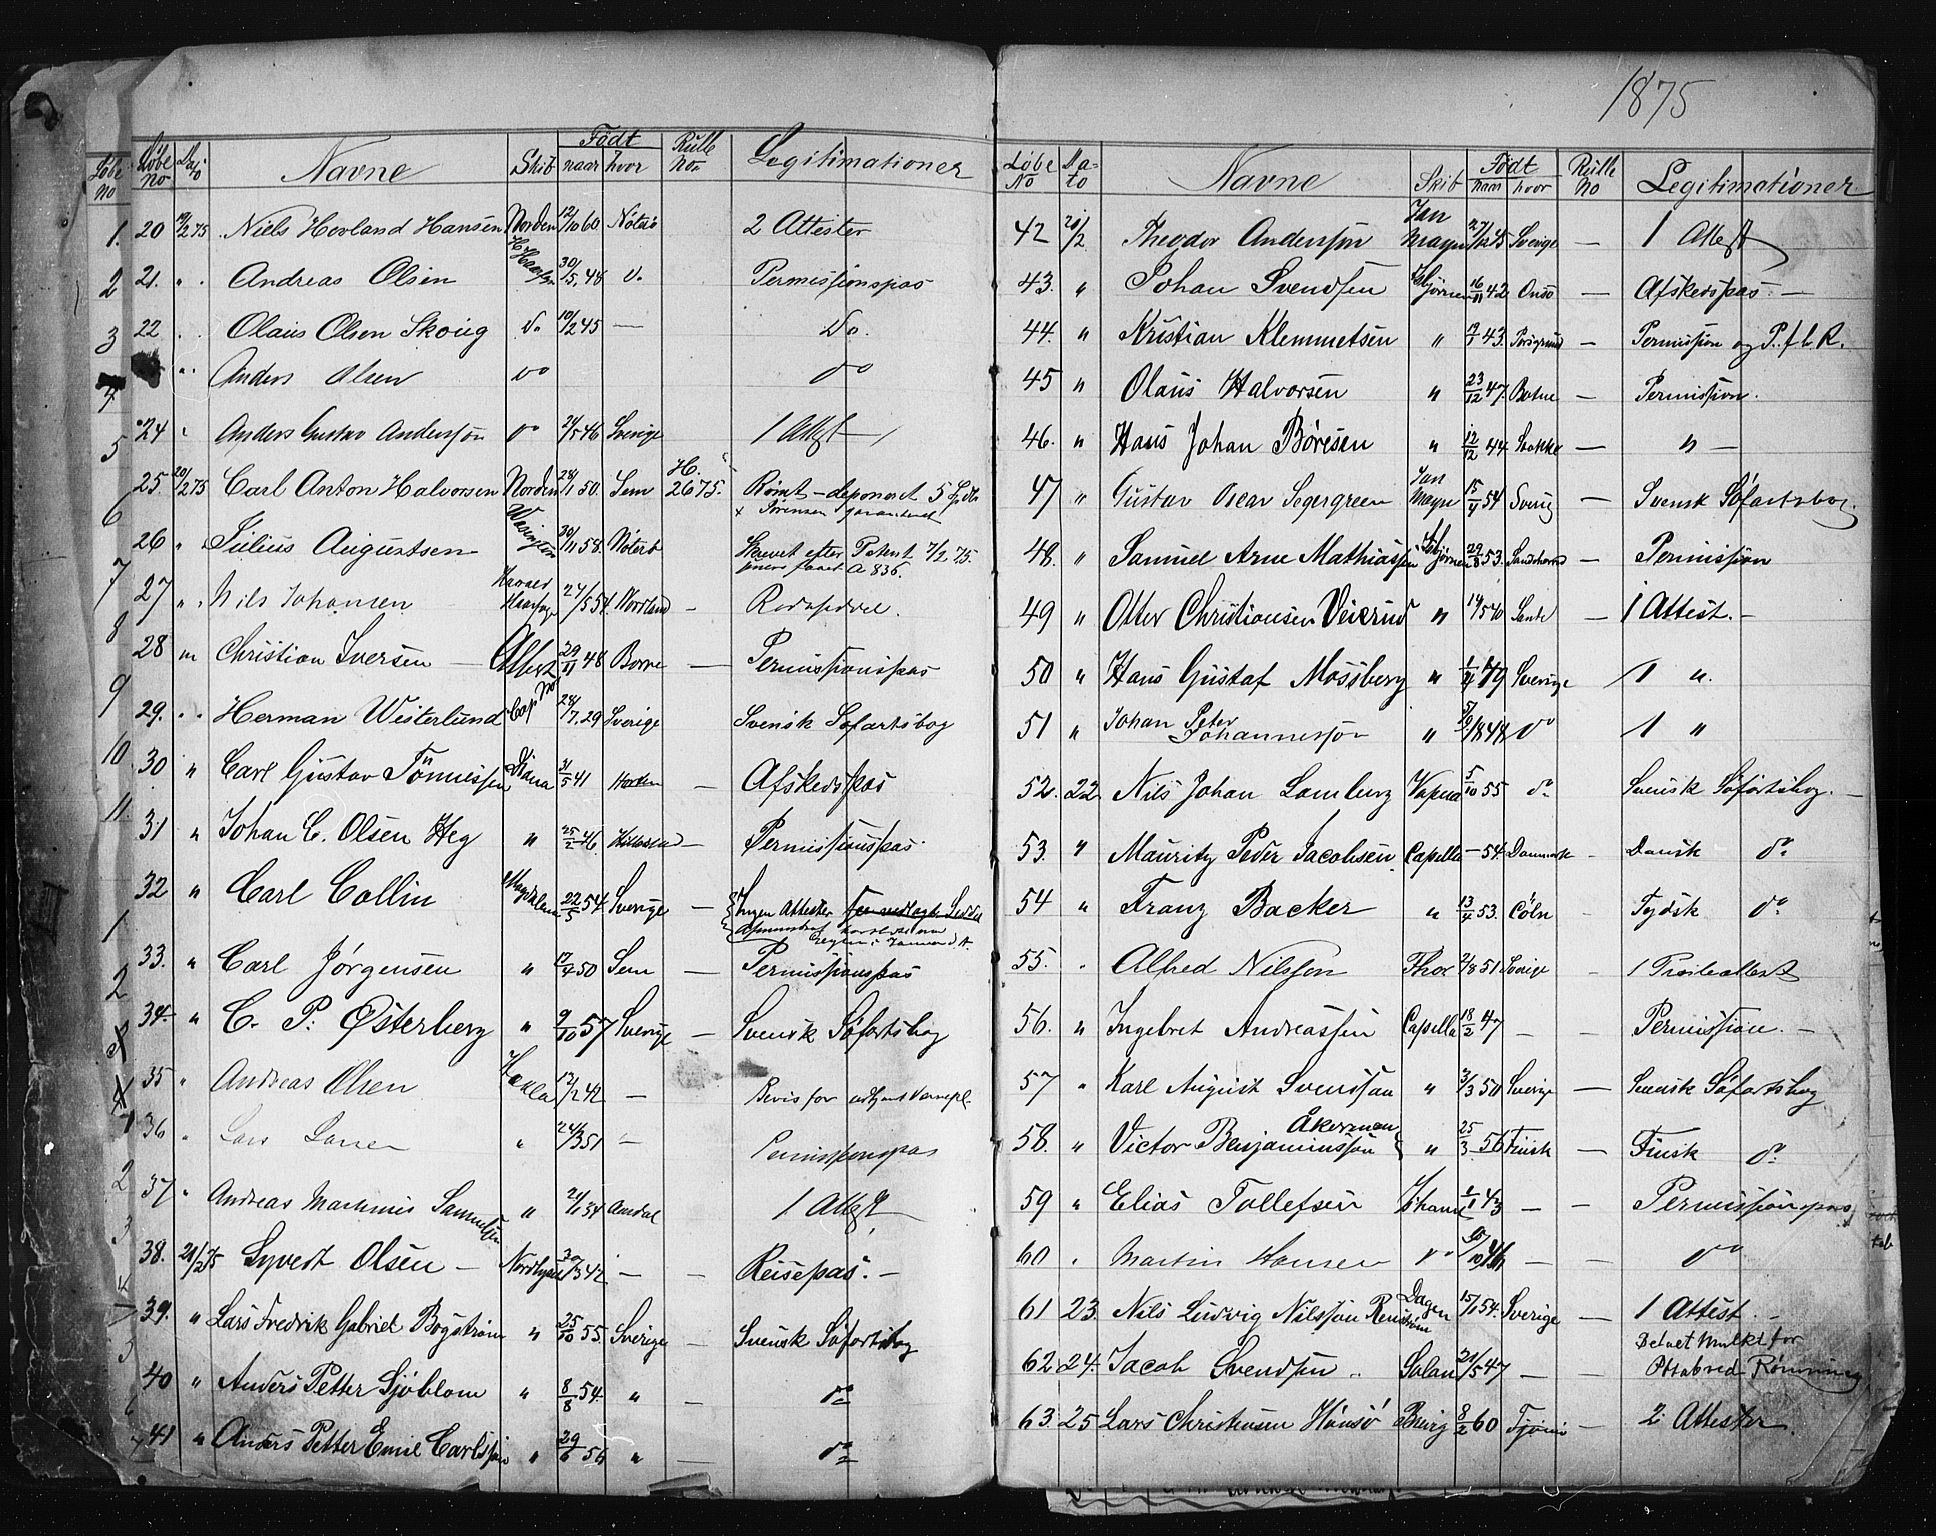 Løbe No | Dato | Navne | Skib | Födt naar | hvor | Rulle No. | Legitimationer
20 19/2 75 Niels Hovland Hansen Norden 12/10 60 Nöterö 2 Attester
21. " Andreas Olsen H Hansen 30/5 48 do Permissionspas
22 " Olaus Olsen Skoug do 10/2 45 — Do.
" Anders Olsen do do
24 " Anders Gustav Andersson do 24/5 46 Sverige 1 Attest
25. 20/2 75 Carl Anton Halvorsen Norden 28/11 50. Sem H. 2675. Rømt – deponeret 5 Spd
26 " Julius Augustsen 30/11 58. Nöterö Skrevet efter Patent 7/2 75.
A 836.
27 " Nils Johansen Harald Haarfager 24/5 54 Nordland –
28 " Christian Iversen – Albert 29/11 48 Borre — Permissionspas
29. " Herman Westerlund 28/7 29 Sverige Svensk Sofartsbog
30 " Carl Gustav Tönnissen Diana 31/5 41 Horten – Afskedspas
31 " Johan C. Olsen Heg " 25/2 46. – Permissionspas
32 " Carl Collin 22/5 54 Sverige – Ingen Attester
33. " Carl Jörgensen " 17/7 50 Sem – Permissionspas
34. " C. P. Østerberg " 9/10 57 Sverige – Svensk Söfartsbog
35 " Andreas Olsen Hekla 12/2 42 – Bevis for udtjent Vernepl.
36 " " 24/3 51 – Permissionspas
37 " Andreas Mathinus Samuelsen " 24/1 54 Arendal 1 Attest
38. 21/2 75 Syvert Olsen – Nordlyset 30/3 42 – – Reisepas. –
39. " Lars Fredrik Gabriel Bogström " 25/10 55. Sverige – Svensk Söfartsbog
40 " Anders Petter Sjöblom " 8/8 54. " – do
41 " Anders Petter Emil Carlsson " 29/6 56 " — do
1875
Løbe No | Dato | Navne | Skib | Födt naar | hvor | Rulle No | Legitimationer
42 21/2. Theodor Andersson Jan Mayn 27/12 45 Sverige – 1 Attest
43. " Johan Svendsen Isbjörnen 16/11 42 Onsö – Afskedspas. –
44. " Kristian Klemmetsen " 17/1 43. Porsgrund – Permission og P. f. l. R.
45 " Olaus Halvorsen " 23/12 47. Botne – Permission.
46. " Hans Johan Böresen " 12/12 44. Stokke – " –
47 " Gustav Oscar Segergreen Jan Mayn 15/4 54 Sverig – Svensk Söfartsbog.
48. " Samuel Arne Mathiassen Isbjörnen 29/8 53. Sandeherred – Permission
49 " Otter Christiansen Veierud " 14/5 40 Sande – 1 Attest. –
50 " Hans Gustaf Mossberg " 1/4 49 Sverige – 1 ".
51 " Johan Peter Johannesson " 5/9 1848 do 1 "
52. 22. Nils Johan Lamberg Vapna 5/10 55 do Svensk Söfartsbog. –
53. " Mauritz Peder Jacobsen. Capella – 54. Danmark – Dansk do
54 " Franz Backer " 13/4 53. Cöln – Tydsk do
55. " Alfred Nilsson Thor 2/8 51 Sverige –
56. " Ingebret Andreassen Capella 18/2 47 – – Permission. –
57 " Karl August Svensson " 3/3 50 Sverige – Svensk Söfartsbog
58. " Victor Benjaminsson Åkerman " 25/3 56 Finsk – Finsk do
59 " Elias Tollefsen Johanne 2/1 43 – – Permissionspas
60 " Martin Hansen do 30/10 46 – – do
61 23. Nils Ludvig Nilsson Renström Dagen 15/11 54. Sverige – 1 Attest. –
62. 24. Jacob Svendsen " Solan 21/5 47 – – Betalt Mulkt for
Rømning
63. 25 Lars Christensen Hönsö Brevig 8/2 60 Tjömö – 2 Attester.